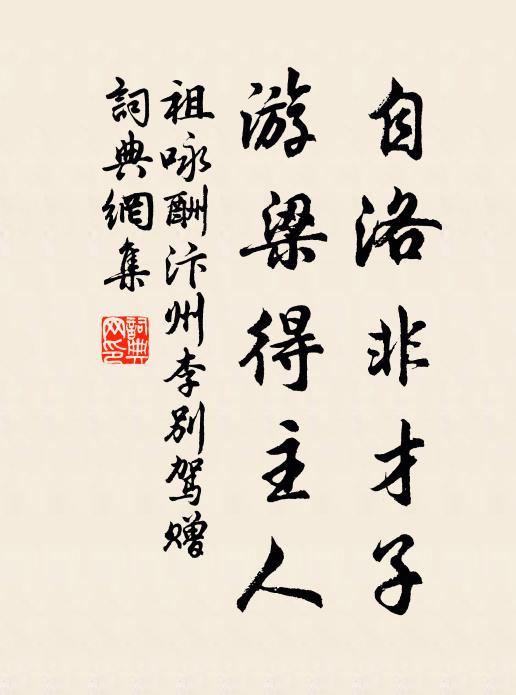 自洛非才子
游梁得主人
祖咏酬汴州李别驾赠
詞典網集
詞典网印